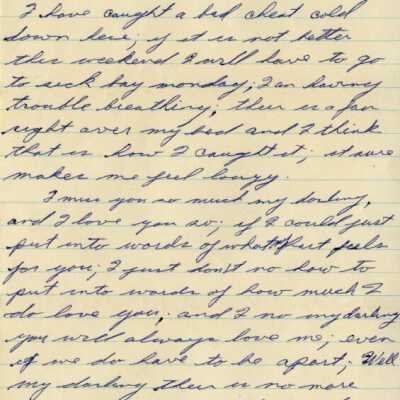 I have caught a bad chest cold
down here; if it is not better
this weekend I will have to go
to sick bay monday; I am having
trouble breathing; ther is a fan
right over my bed and I think
that is how I caught it; it sure
makes me feel lousy.
I miss you so much my darling,
and I love you so; if I could just
put into words of what my heart feels
for you; I just don't no how to
put into words of how much I
do love you; and I no my darling
you will always love me; even
if we do have to be apart; Well
my darling ther is no more